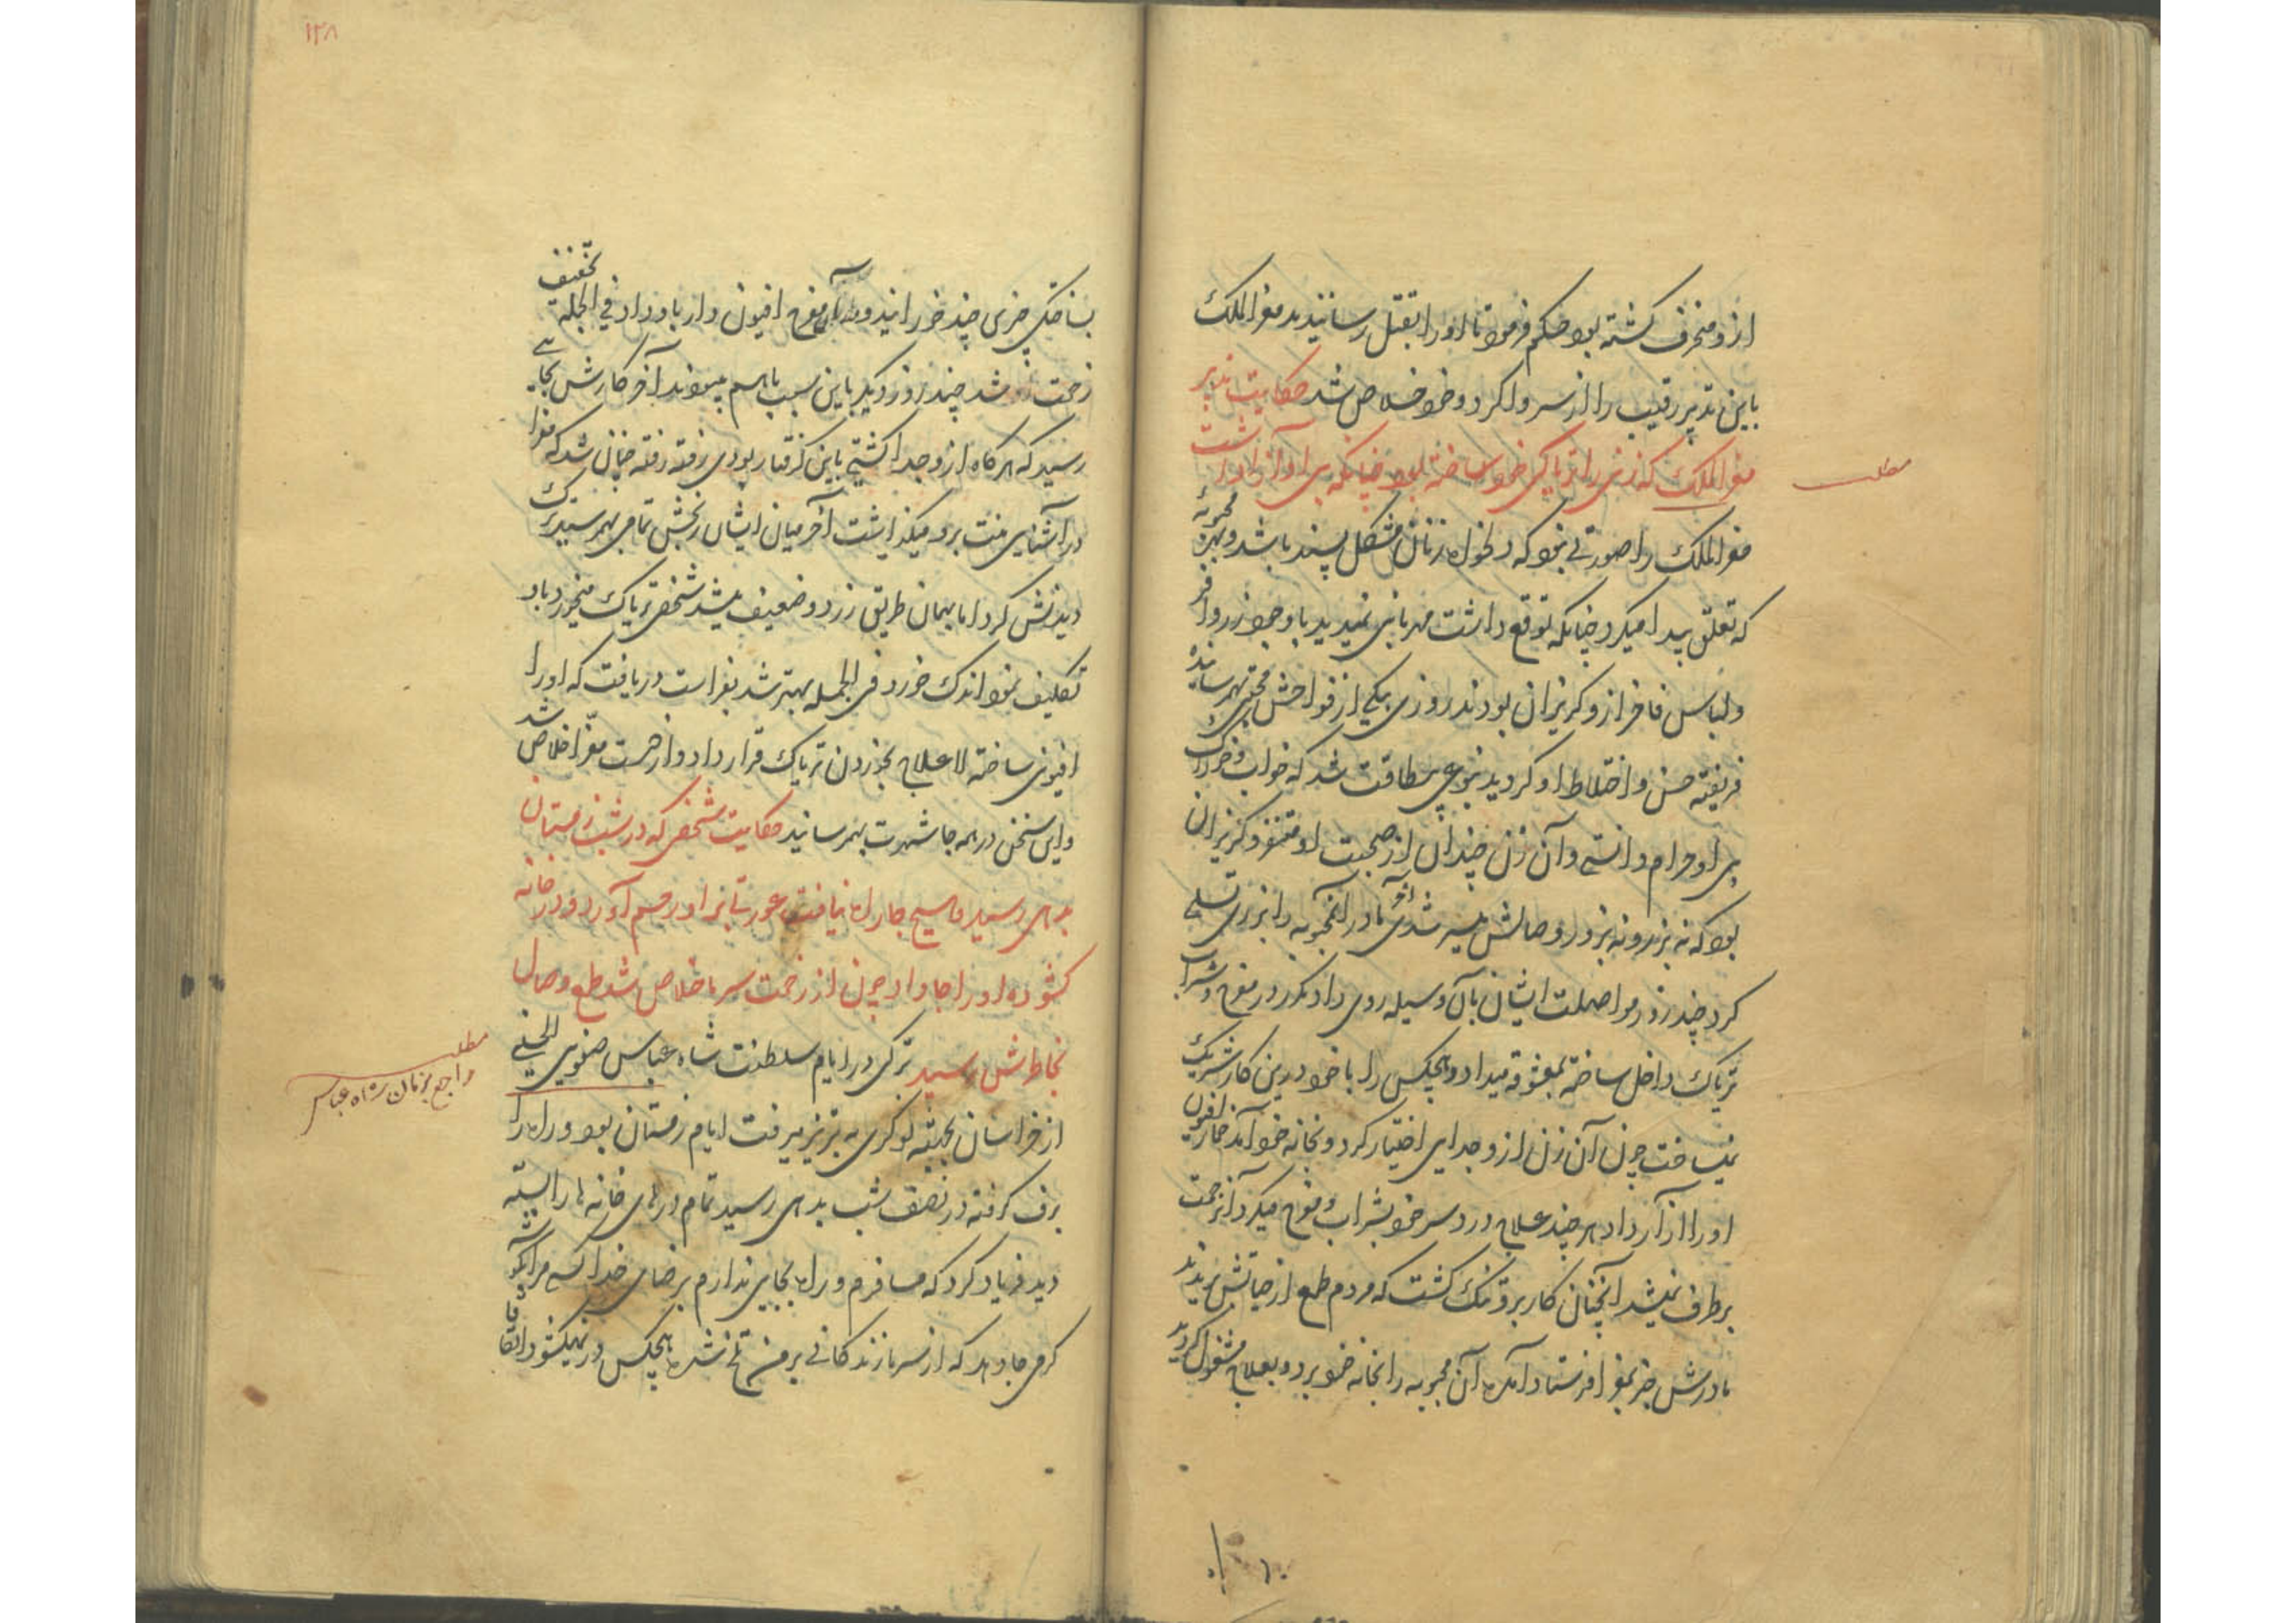 از و منحرف گشته بود حکم فرمود تا او را بقتل رسانیدند معزالملک
باین تدبیر رقیب را از سر وا کرد و خود خلاص شد حکایت تدبیر
معزالملک که زنی را تریاکی خود ساخته بود چنانکه بی او آرام نداشت
مطلب
معزالملک را صورتی نبود که دلخواه زنان مشکل پسند باشد و بهر محبوبه
که تعلق پیدا میکرد چنانکه توقع داشت مهربانی نمیدید با وجود زر وافر
و لباس فاخر از و گریزان بودند روزی بیکی از فواحش محبتی بهم رسانیده
فریفته حسن و اختلاط او گردید بنوعی بیطاقت شد که خواب و خوراک
بی او حرام دانستی و آن زن چندان از صحبت او متنفر و گریزان
بود که نه بزر و نه بزور وصالش میسر شدی آخر مادر آن محبوبه را بزر تسلی
کرد چند روز مواصلت ایشان بآن وسیله روی داد مکرر در مفرح و شراب
تریاک داخل ساخته بمعشوقه میداد و هیچکس را با خود درین کار شریک
نمیساخت چون آن زن از و جدایی اختیار کرد و بخانه خود آمد خمار افیون
او را آزار داد هر چند علاج درد سر خود بشراب و مفرح میکرد آن زحمت
برطرف نمیشد آنچنان کار بر و تنگ گشت که مردم طمع از حیاتش بریدند
مادرش خبر بمعزا فرستاد آمده آن محبوبه را بخانه خود برد و بعلاج مشغول گردید
۱۳۸
بساختگی چیزی چند خورانید و بدستور مفرح افیون دار باو داد فی الجمله تخفیف
زحمت شد چند روز دیگر باین سبب باهم میبودند آخر کارش بجایی
رسید که هرگاه از و جدا گشتی باین گرفتار بودی رفته رفته چنان شد که معزا
در آشنایی منت برو میگذاشت آخر میان ایشان رنجش تمام بهم رسید ترک
دیدنش کرد اما بهمان طریق زرد و ضعیف میشد شخصی تریاک میخورد باو
تکلیف نمود اندک خورد فی الجمله بهتر شد بفراست دریافت که او را
افیونی ساخته لاعلاج بخوردن تریاک قرار داد و از حسرت معزا خلاص شد
و این سخن در همه جا شهرت بهم رسانید حکایت شخصی که در شب زمستان
بدهی رسید و هیچ جا راه نیافت عورتی بر او رحم آورد و در خانه
گشوده او را جا داد چون از زحمت سرما خلاص شد طمع وصال
بخاطرش رسید ترکی در ایام سلطنت شاه عباس صفوی الحسینی
مطلب
راجع بزمان شاه عباس
از خراسان بجهته نوکری به تبریز میرفت ایام زمستان بود و راه را
برف گرفته در نصف شب بدهی رسید تمام درهای خانه ها را بسته
دید فریاد کرد که مسافرم و راه بجایی ندارم برضای خدا کسی مرا بگوشه
گرمی جا دهد که از سرما زندگانی بر من تلخ شده هیچکس در نمیگشود اتفاقا